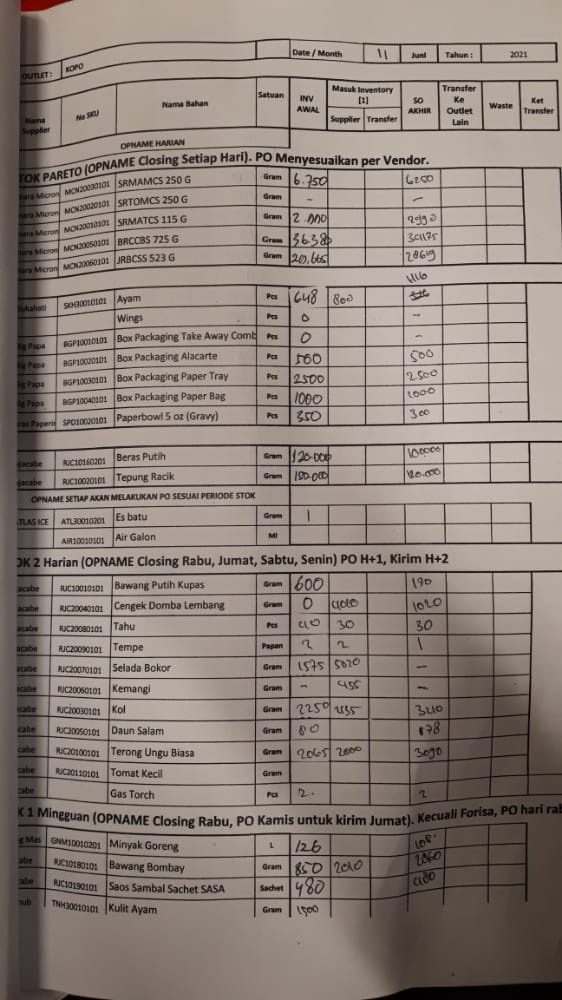 Date / Month 11 Juni Tahun : 2021
OUTLET : KOPO
Nama Supplier No SKU Nama Bahan Satuan INV AWAL Masuk Inventory [1] Supplier Transfer SO AKHIR Transfer Ke Outlet Lain Waste Ket Transfer
OPNAME HARIAN
TOK PARETO (OPNAME Closing Setiap Hari). PO Menyesuaikan per Vendor.
Micron MCN20030101 SRMAMCS 250 G Gram 6.750 6200
Micron MCN20020101 SRTOMCS 250 G Gram - -
Micron MCN20010101 SRMATCS 115 G Gram
Micron MCN20050101 BRCCBS 725 G Gram
Micron MCN20060101 JRBCSS 523 G Gram
SKH30010101 Ayam Pcs 648 800
Wings Pcs 0 -
Papa BGP10010101 Box Packaging Take Away Comb Pcs 0 -
Papa BGP10020101 Box Packaging Alacarte Pcs 500 500
Papa BGP10030101 Box Packaging Paper Tray Pcs 2500 2500
Papa BGP10040101 Box Packaging Paper Bag Pcs 1000 1000
SPO10020101 Paperbowl 5 oz (Gravy) Pcs 350 300
jacabe RJC10160201 Beras Putih Gram 120.000 100.000
jacabe RJC10020101 Tepung Racik Gram 120.000
OPNAME SETIAP AKAN MELAKUKAN PO SESUAI PERIODE STOK
TLAS ICE ATL30010201 Es batu Gram 1
AIR10010101 Air Galon Ml
OK 2 Harian (OPNAME Closing Rabu, Jumat, Sabtu, Senin) PO H+1, Kirim H+2
acabe RJC10010101 Bawang Putih Kupas Gram 600 190
acabe RJC20040101 Cengek Domba Lembang Gram 0 1020
acabe RJC20080101 Tahu Pcs 40 30 30
acabe RJC20090101 Tempe Papan 2 2 1
acabe RJC20070101 Selada Bokor Gram 1575 5020 -
cabe RJC20060101 Kemangi Gram - 455 -
cabe RJC20030101 Kol Gram 2250 3210
cabe RJC20050101 Daun Salam Gram 80 78
cabe RJC20100101 Terong Ungu Biasa Gram 2065 2000 3090
cabe RJC20110101 Tomat Kecil Gram
cabe Gas Torch Pcs 2. 2
K 1 Mingguan (OPNAME Closing Rabu, PO Kamis untuk kirim Jumat). Kecuali Forisa, PO hari
g Mas GNM10010201 Minyak Goreng L 126 108
abe RJC10180101 Bawang Bombay Gram 850 2010 2860
abe RJC10190101 Saos Sambal Sachet SASA Sachet 480 480
TNH30010101 Kulit Ayam Gram 1500